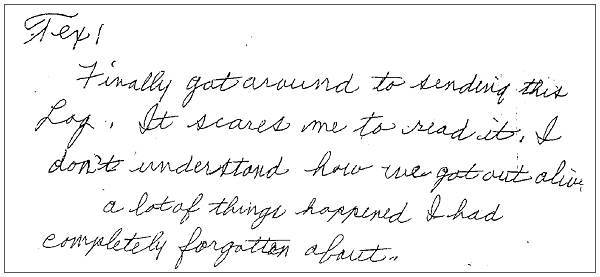 Tex!
Finally got around to sending this
Log. It scares me to read it. I
don't understand how we got out alive.
a lot of things happened I had
completely forgotten about..